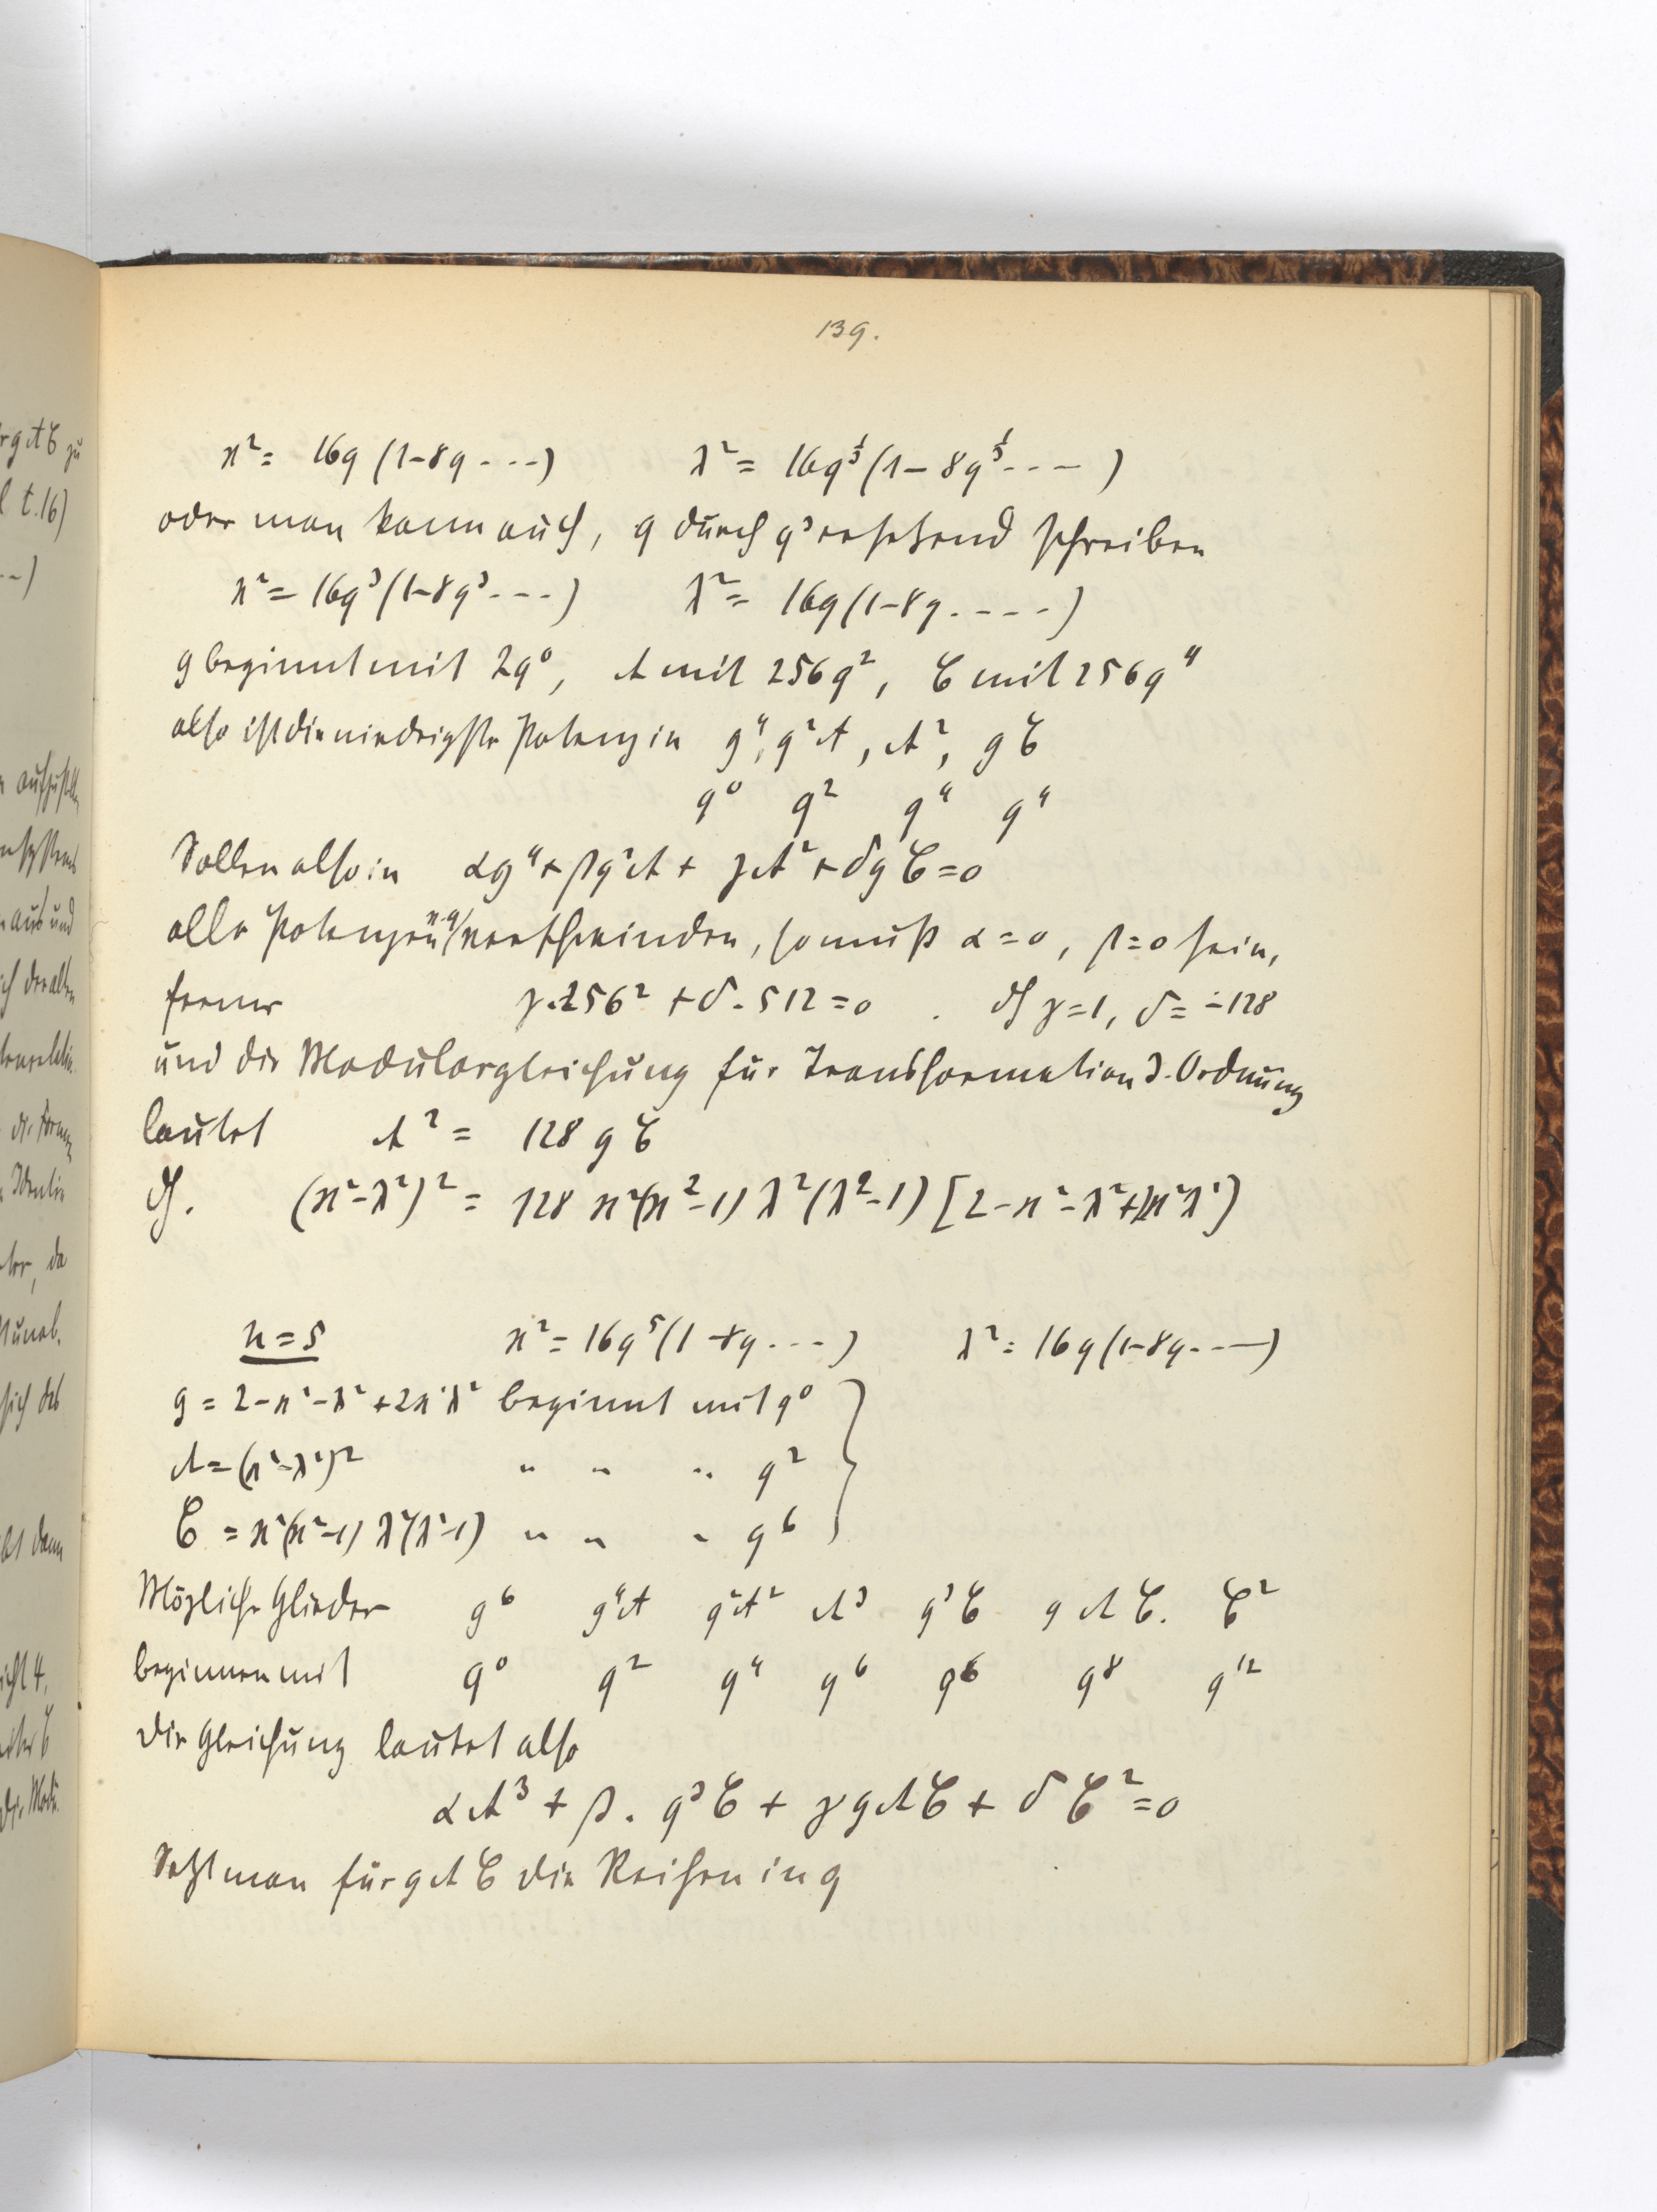 139.
ϰ² = 16q (1-8q ---) λ² = 16q^⅓ (1 - 8q^⅓ --- )
oder man kann auch, q durch q³ ersetzend schreiben
ϰ² = 16q³ (1-8q³ ---) λ² = 16q (1-8q ----)
g beginnt mit 2q⁰, A mit 256q², C mit 256q⁴
also ist die niedrigste Potenz in g⁴, g²A, A², gC
q⁰ q² q⁴ q⁴
Sollen also in αg⁴ + βg²A + γA² + δgC = 0
alle Potenzen v. q verschwinden, so muß α = 0, β = 0 sein,
ferner γ.256² + δ.512 = 0 . dh γ = 1, δ = -128
und die Modulargleichung für Transformation 3. Ordnung
lautet A² = 128 g C
dh. (ϰ²-λ²)² = 128 ϰ²(ϰ²-1) λ²(λ²-1) [2-ϰ²-λ²+2ϰ²λ²]
n = 5 ϰ² = 16q⁵ (1-8q ---) λ² = 16q (1-8q ---)
g = 2-ϰ²-λ²+2ϰ²λ² beginnt mit q⁰
A = (ϰ²-λ²)² " " " q²
C = ϰ²(ϰ²-1) λ²(λ²-1) " " " q⁶
Mögliche Glieder g⁶ g⁴A g²A² A³ g³C gAC. C²
beginnen mit q⁰ q² q⁴ q⁶ q⁶ q⁸ q¹²
Die Gleichung lautet also
αA³ + β. g³C + γgAC + δC² = 0
Setzt man für g A C die Reihen in q